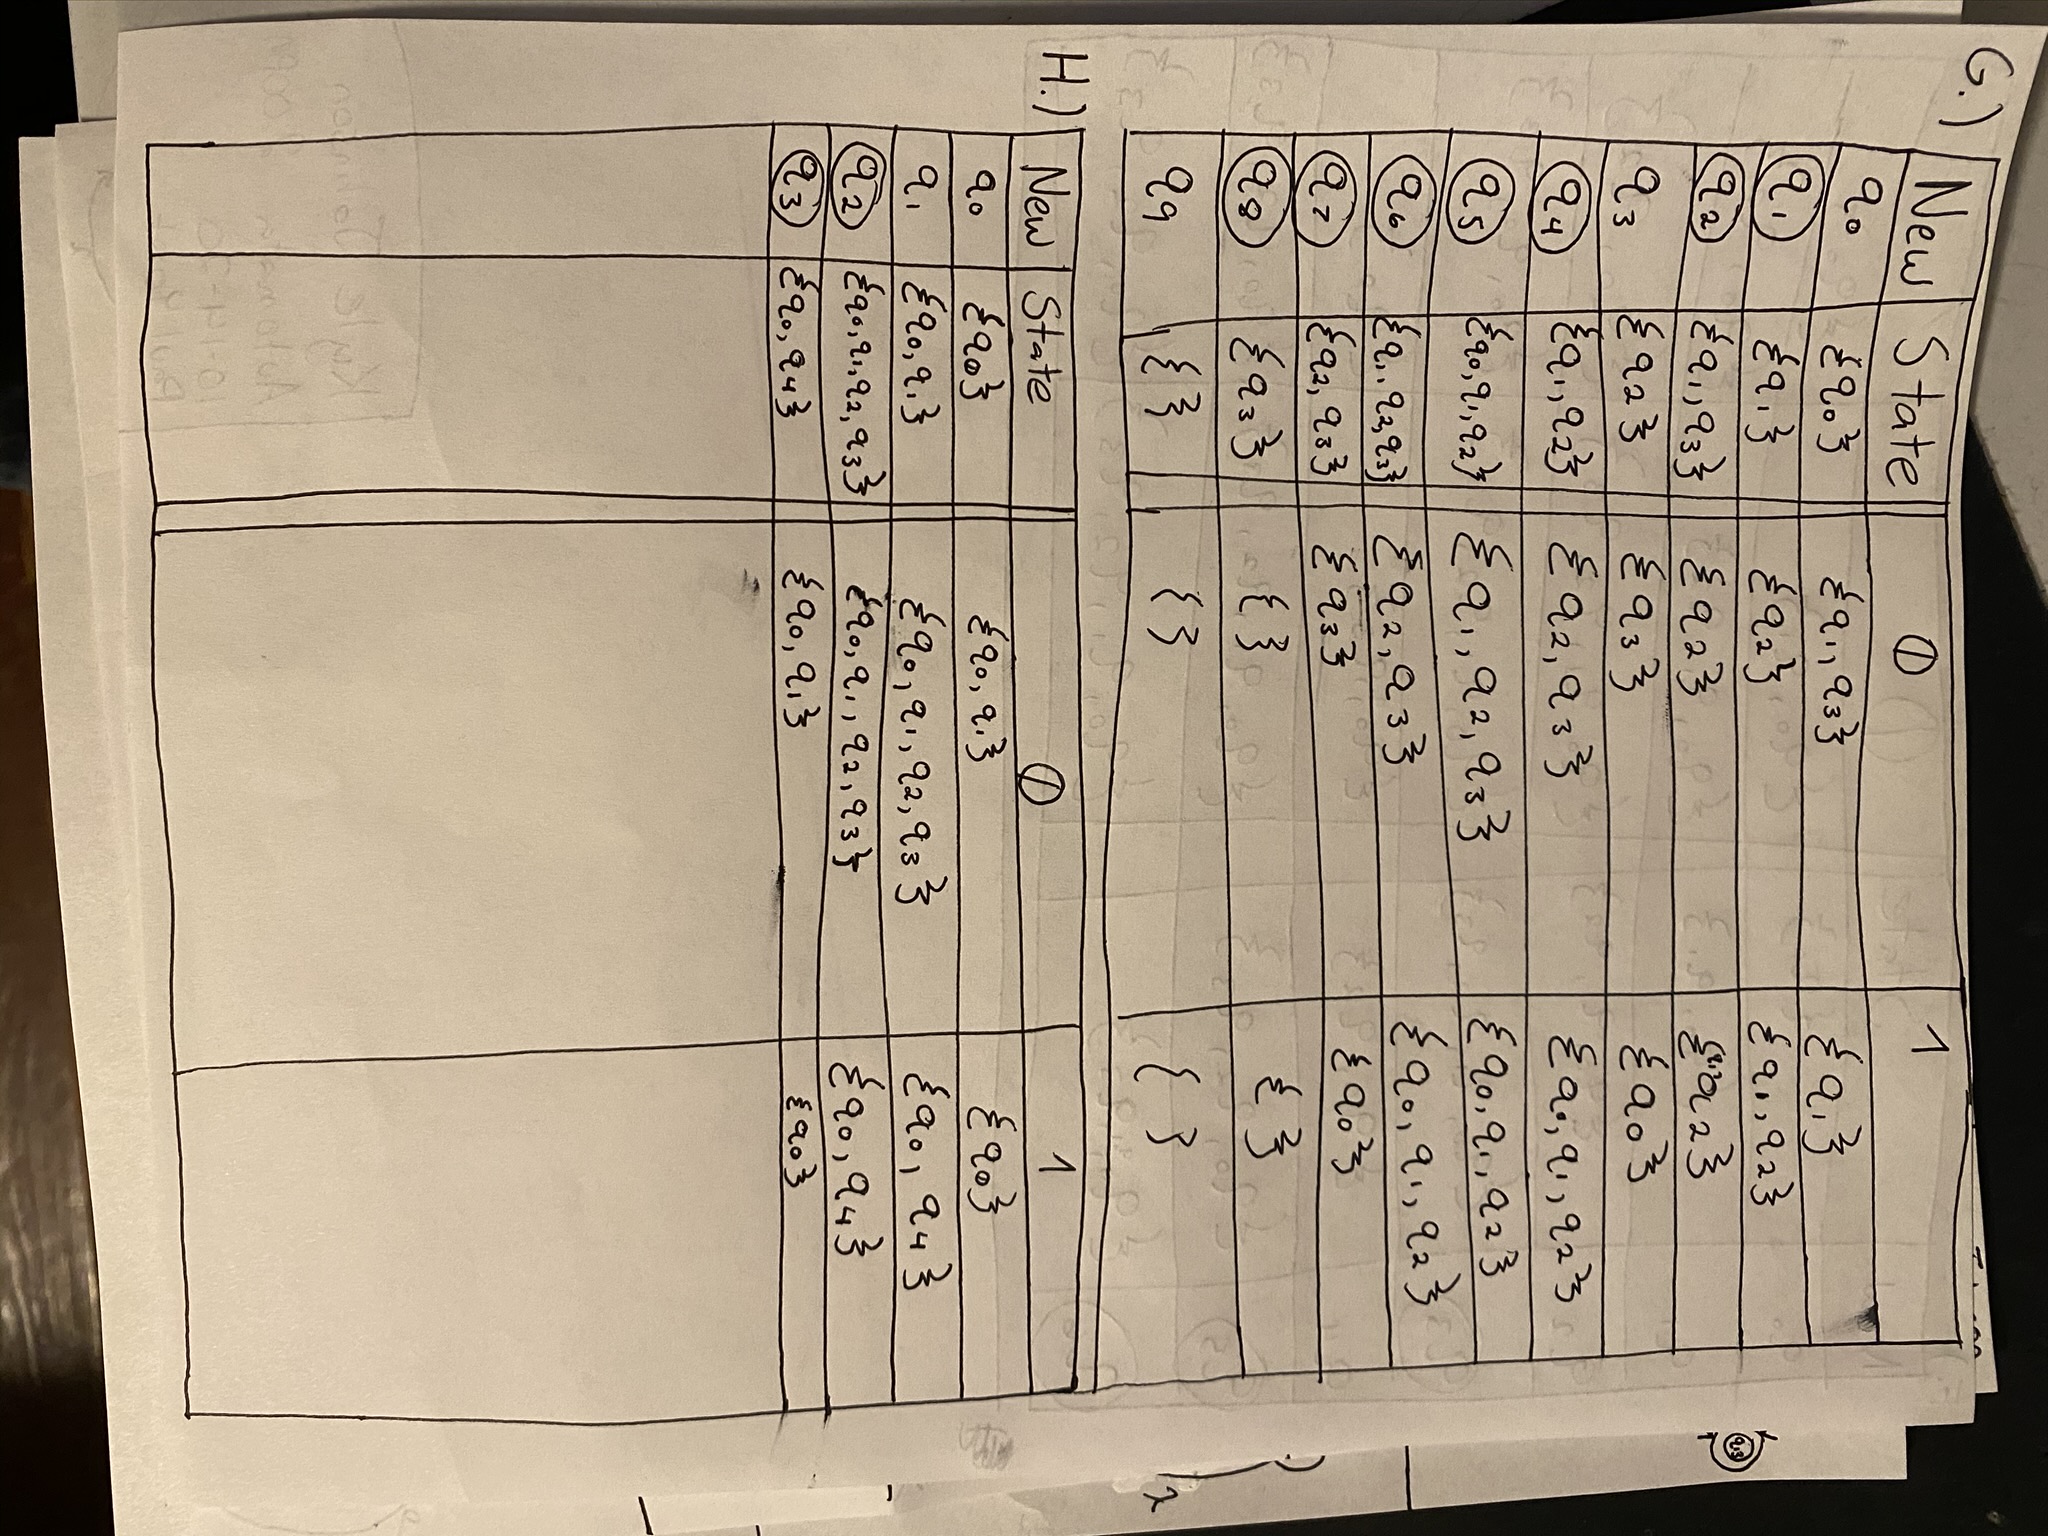 G.)
New State 0 1
q0 {q0} {q1, q3} {q1}
q1 {q1} {q2} {q1, q2}
q2 {q1, q3} {q2} {q1, q2}
q3 {q2} {q3} {q0}
q4 {q1, q2} {q2, q3} {q0, q1, q2}
q5 {q0, q1, q2} {q1, q2, q3} {q0, q1, q2}
q6 {q1, q2, q3} {q2, q3} {q0, q1, q2}
q7 {q2, q3} {q3} {q0}
q8 {q3} { } { }
q9 { } { } { }
H.)
New State 0 1
q0 {q0} {q0, q1} {q0}
q1 {q0, q1} {q0, q1, q2, q3} {q0, q4}
q2 {q0, q1, q2, q3} {q0, q1, q2, q3} {q0, q4}
q3 {q0, q4} {q0, q1} {q0}
Kyle Johnson
Automata
10-14-20